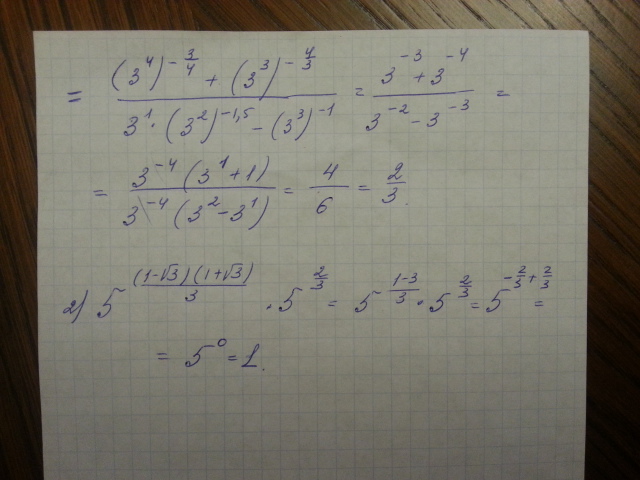 = ((3^4)^{-3/4} + (3^3)^{-4/3}) / (3^1 · (3^2)^{-1,5} - (3^3)^{-1}) = (3^{-3} + 3^{-4}) / (3^{-2} - 3^{-3}) =
= (3^{-4} (3^1 + 1)) / (3^{-4} (3^2 - 3^1)) = 4/6 = 2/3.
2) 5^{((1-√3)(1+√3))/3} · 5^{2/3} = 5^{(1-3)/3} · 5^{2/3} = 5^{-2/3 + 2/3} =
= 5^0 = 1.